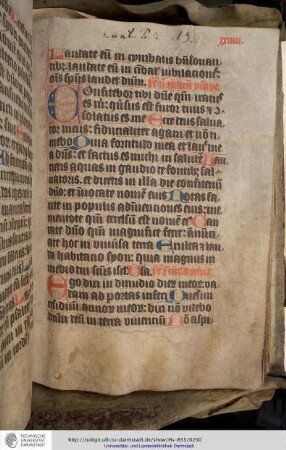 xxxiiii.
Laudate eū in cymbalis
laudate eū in
ōis sp̄us laudet dn̄m.
Confitebor tibi dn̄e qm̄ iratus
es m̄: furor tuus
solatus es me Ecce deus salua
tor meus: fiducialiter agam et nō ti
mebo Quia fortitudo mea et laus mea
dn̄s: et factus es michi in salutē Hau
rietis aquas in gaudio de fontibus sal
uatoris: et dicetis in illa die confitemini
dn̄o: et inuocate nomē eius Notas fa
cite in populis adinuenciones eius: me
mentote qm̄ excelsū est nomē eius Can
tate dn̄o qm̄ magnifice fecit: annūci
ate hoc in vniuersa terra Exulta et lau
da habitacio syon: quia magnus in
medio tui sc̄us isrl̄
Ego dixi in dimidio dierū meorū: va
dam ad portas inferi Quesiui
residuū annorū meorū: dixi nō videbo
dn̄m deū in terra viuenciū Nō aspi
TECHNISCHE
UNIVERSITÄT
DARMSTADT
http://tudigit.ulb.tu-darmstadt.de/show/Hs-855/0250
Universitäts- und Landesbibliothek Darmstadt